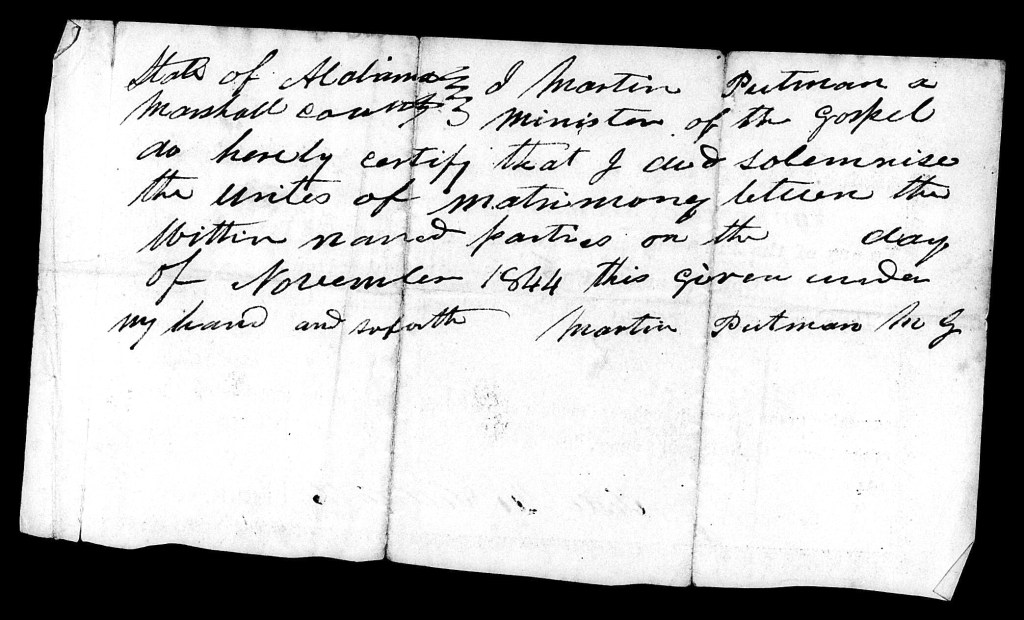 State of Alabama } I Martin Putman a
Marshall county } Minister of the Gospel
do hereby certify that I did solemnise
the unites of matrimony between the
Within named parties on the day
of November 1844 this given under
my hand and soforth Martin Putman M G